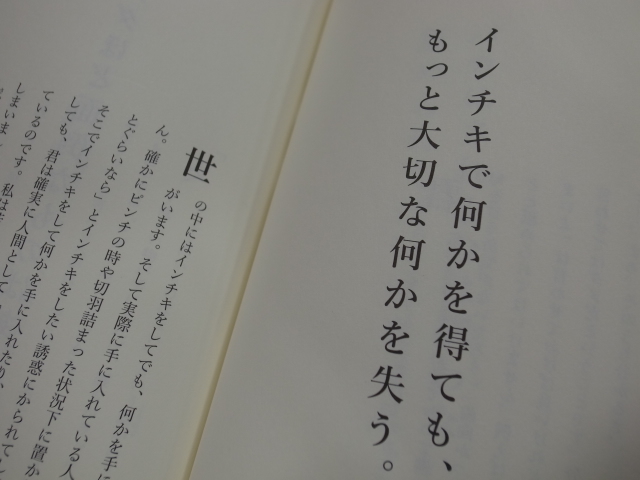 インチキで何かを得ても、
もっと大切な何かを失う。
世の中にはインチキをしてでも、何かを手に
がいます。そして実際に手に入れている人
ん。確かにピンチの時や切羽詰まった状況下に置か
とぐらいなら」とインチキをしたい誘惑にかられて
そこでインチキをして何かを手に入れたり、
しても、君は確実に人間として
ているのです。私は
しまいま